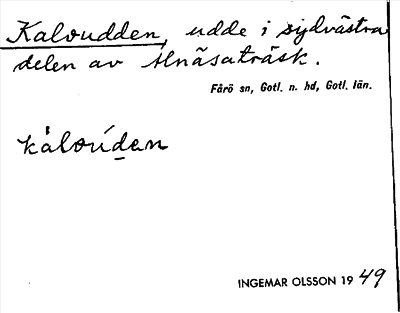 Kalvudden, udde i sydvästra
delen av Alnäsaträsk.
Fårö sn, Gotl. n. hd, Gotl. län.
INGEMAR OLSSON 19 49